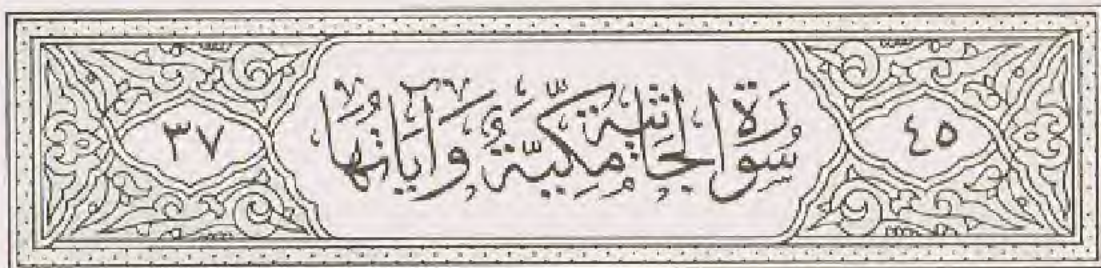 ٤٥ سورة الجاثية مكية وآياتها ٣٧